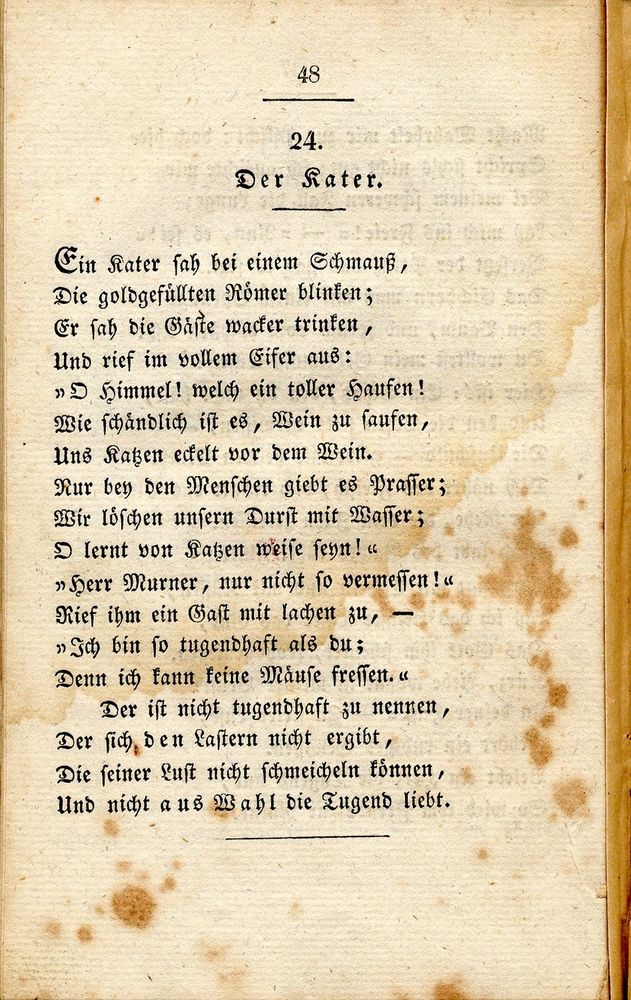 48
24.
Der Kater.
Ein Kater sah bei einem Schmauß,
Die goldgefüllten Römer blinken;
Er sah die Gäste wacker trinken,
Und rief im vollem Eifer aus:
»O Himmel! welch ein toller Haufen!
Wie schändlich ist es, Wein zu saufen,
Uns Katzen eckelt vor dem Wein.
Nur bey den Menschen giebt es Prasser;
Wir löschen unsern Durst mit Wasser;
O lernt von Katzen weise seyn!«
»Herr Murner, nur nicht so vermessen!«
Rief ihm ein Gast mit lachen zu, —
»Ich bin so tugendhaft als du;
Denn ich kann keine Mäuse fressen.«
Der ist nicht tugendhaft zu nennen,
Der sich den Lastern nicht ergibt,
Die seiner Lust nicht schmeicheln können,
Und nicht aus Wahl die Tugend liebt.